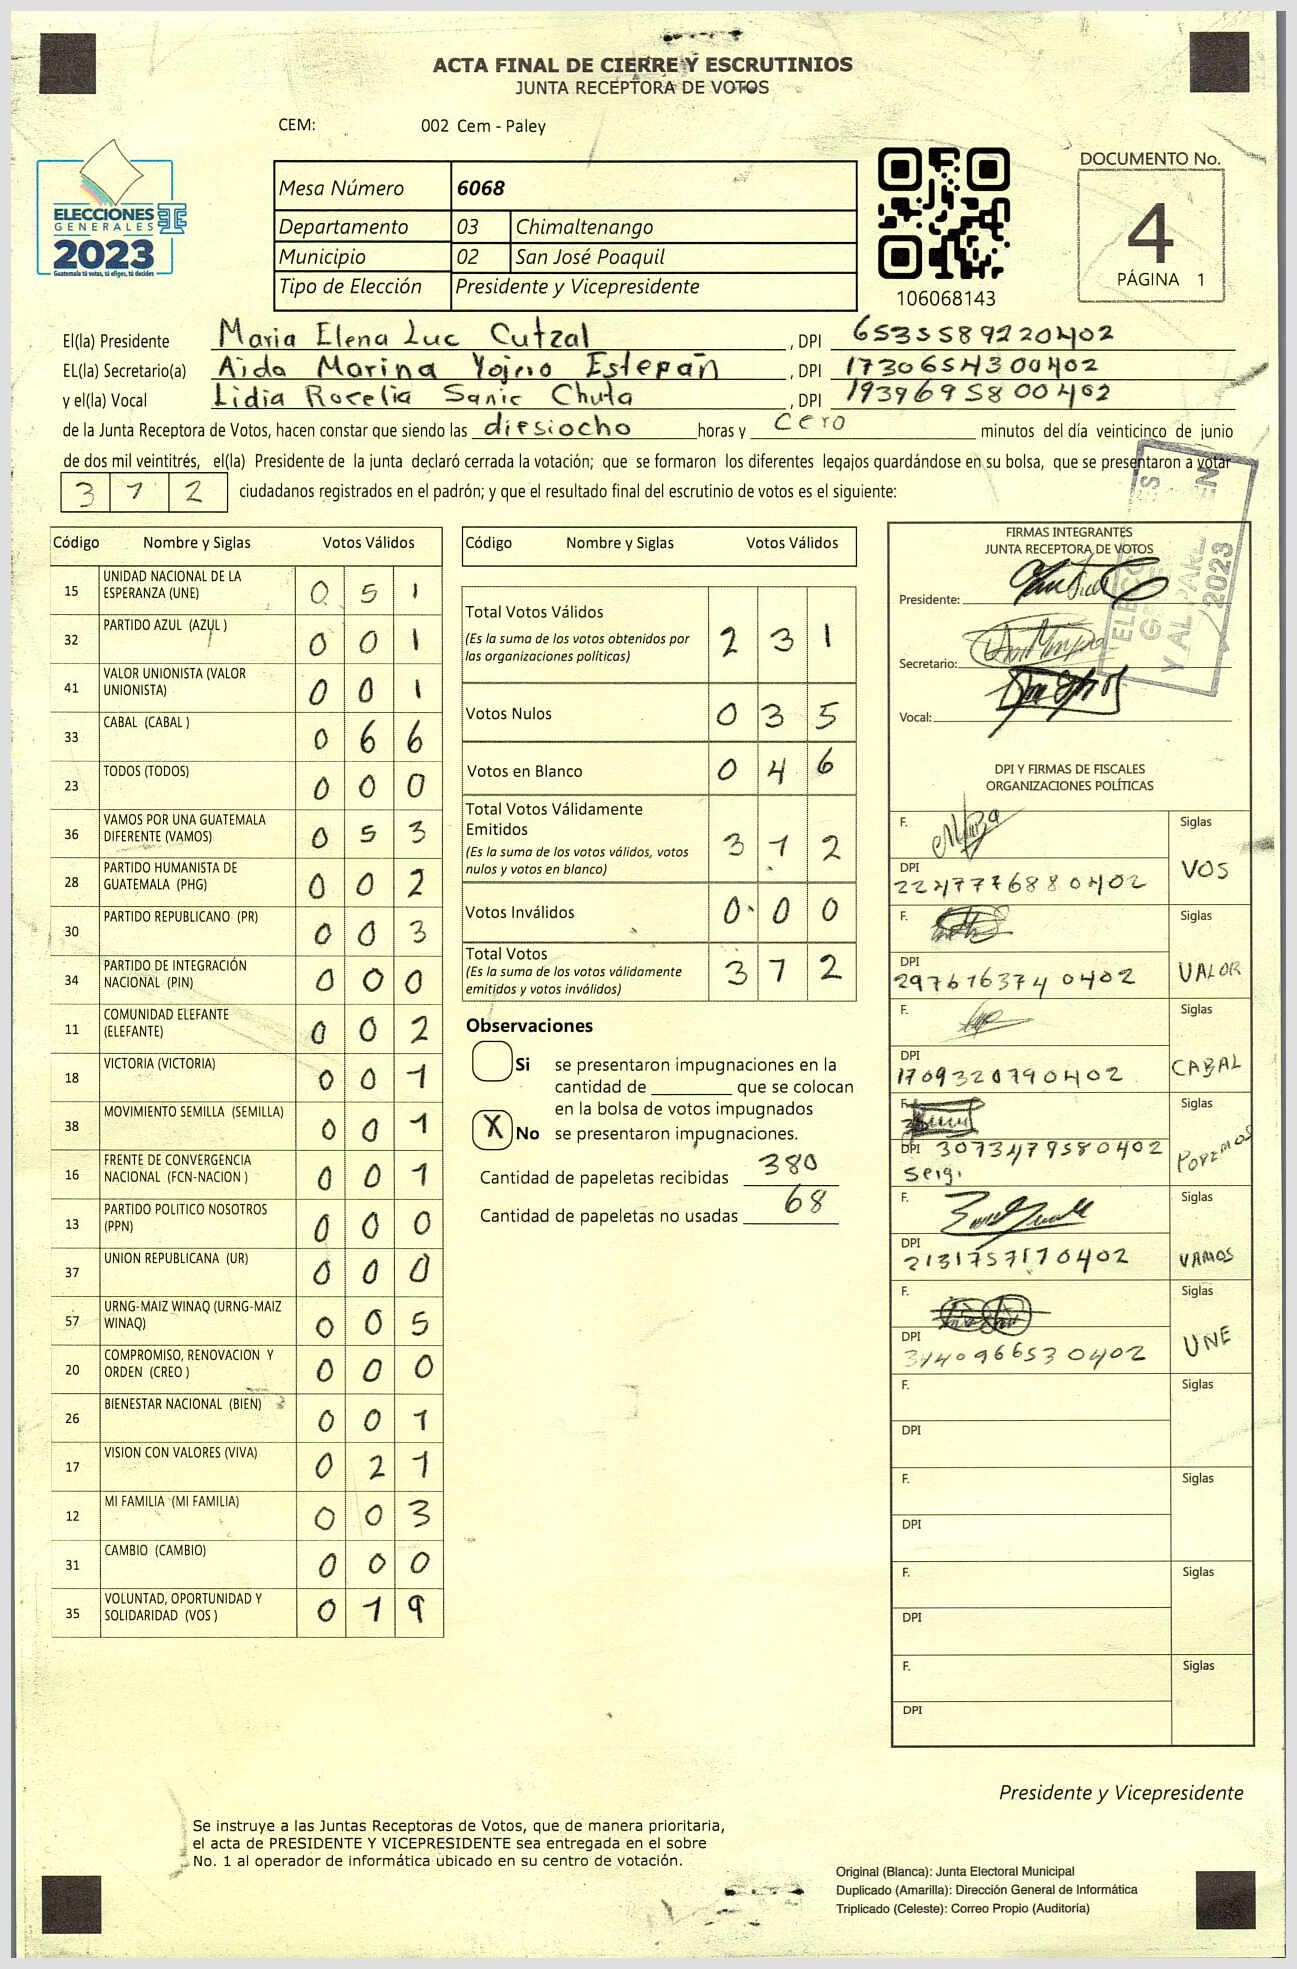 ACTA FINAL DE CIERRE Y ESCRUTINIOS
JUNTA RECEPTORA DE VOTOS
CEM: 002 Cem - Paley
ELECCIONES
GENERALES
2023
Guatemala tú votas, tú eliges, tú decides
Mesa Número 6068
Departamento 03 Chimaltenango
Municipio 02 San José Poaquil
Tipo de Elección Presidente y Vicepresidente
106068143
DOCUMENTO No.
4
PÁGINA 1
El(la) Presidente Maria Elena Luc Cutzal , DPI 6535589220402
EL(la) Secretario(a) Aida Marina Yojno Estepan , DPI 1730654300402
y el(la) Vocal Lidia Rocelia Sanic Chuta , DPI 1939695800402
de la Junta Receptora de Votos, hacen constar que siendo las diesiocho horas y cero minutos del día veinticinco de junio
de dos mil veintitrés, el(la) Presidente de la junta declaró cerrada la votación; que se formaron los diferentes legajos guardándose en su bolsa, que se presentaron a votar
312 ciudadanos registrados en el padrón; y que el resultado final del escrutinio de votos es el siguiente:
Código Nombre y Siglas Votos Válidos
15 UNIDAD NACIONAL DE LA ESPERANZA (UNE) 0 5 1
32 PARTIDO AZUL (AZUL ) 0 0 1
41 VALOR UNIONISTA (VALOR UNIONISTA) 0 0 1
33 CABAL (CABAL ) 0 6 6
23 TODOS (TODOS) 0 0 0
36 VAMOS POR UNA GUATEMALA DIFERENTE (VAMOS) 0 5 3
28 PARTIDO HUMANISTA DE GUATEMALA (PHG) 0 0 2
30 PARTIDO REPUBLICANO (PR) 0 0 3
34 PARTIDO DE INTEGRACIÓN NACIONAL (PIN) 0 0 0
11 COMUNIDAD ELEFANTE (ELEFANTE) 0 0 2
18 VICTORIA (VICTORIA) 0 0 1
38 MOVIMIENTO SEMILLA (SEMILLA) 0 0 1
16 FRENTE DE CONVERGENCIA NACIONAL (FCN-NACION ) 0 0 1
13 PARTIDO POLITICO NOSOTROS (PPN) 0 0 0
37 UNION REPUBLICANA (UR) 0 0 0
57 URNG-MAIZ WINAQ (URNG-MAIZ WINAQ) 0 0 5
20 COMPROMISO, RENOVACION Y ORDEN (CREO ) 0 0 0
26 BIENESTAR NACIONAL (BIEN) 0 0 1
17 VISION CON VALORES (VIVA) 0 2 1
12 MI FAMILIA (MI FAMILIA) 0 0 3
31 CAMBIO (CAMBIO) 0 0 0
35 VOLUNTAD, OPORTUNIDAD Y SOLIDARIDAD (VOS ) 0 1 9
Código Nombre y Siglas Votos Válidos
Total Votos Válidos 2 3 1
(Es la suma de los votos obtenidos por
las organizaciones políticas)
Votos Nulos 0 3 5
Votos en Blanco 0 4 6
Total Votos Válidamente
Emitidos 3 1 2
(Es la suma de los votos válidos, votos
nulos y votos en blanco)
Votos Inválidos 0 0 0
Total Votos 3 1 2
(Es la suma de los votos válidamente
emitidos y votos inválidos)
Observaciones
Si se presentaron impugnaciones en la
cantidad de ________ que se colocan
en la bolsa de votos impugnados
X No se presentaron impugnaciones.
Cantidad de papeletas recibidas 380
Cantidad de papeletas no usadas 68
FIRMAS INTEGRANTES
JUNTA RECEPTORA DE VOTOS
Presidente:
Secretario:
Vocal:
2023
DPI Y FIRMAS DE FISCALES
ORGANIZACIONES POLÍTICAS
F. Siglas
DPI 2247776880402 VOS
F. Siglas
DPI 2976163740402 VALOR
F. Siglas
DPI 1709320790402 CABAL
F. Siglas
DPI 3073479580402 POPEMOS
F. Siglas
DPI 2131757170402 VAMOS
F. Siglas
DPI 3140966530402 UNE
F. Siglas
DPI
F. Siglas
DPI
F. Siglas
DPI
F. Siglas
DPI
Presidente y Vicepresidente
Se instruye a las Juntas Receptoras de Votos, que de manera prioritaria,
el acta de PRESIDENTE Y VICEPRESIDENTE sea entregada en el sobre
No. 1 al operador de informática ubicado en su centro de votación.
Original (Blanca): Junta Electoral Municipal
Duplicado (Amarilla): Dirección General de Informática
Triplicado (Celeste): Correo Propio (Auditoría)